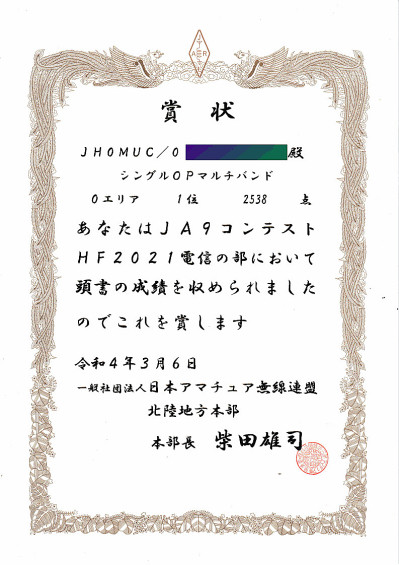 JARL
賞状
JH0MUC／0 殿
シングルOPマルチバンド
0エリア 1位 2538 点
あなたはJA9コンテスト
HF2021電信の部において
頭書の成績を収められました
のでこれを賞します
令和4年3月6日
一般社団法人日本アマチュア無線連盟
北陸地方本部
本部長 柴田雄司